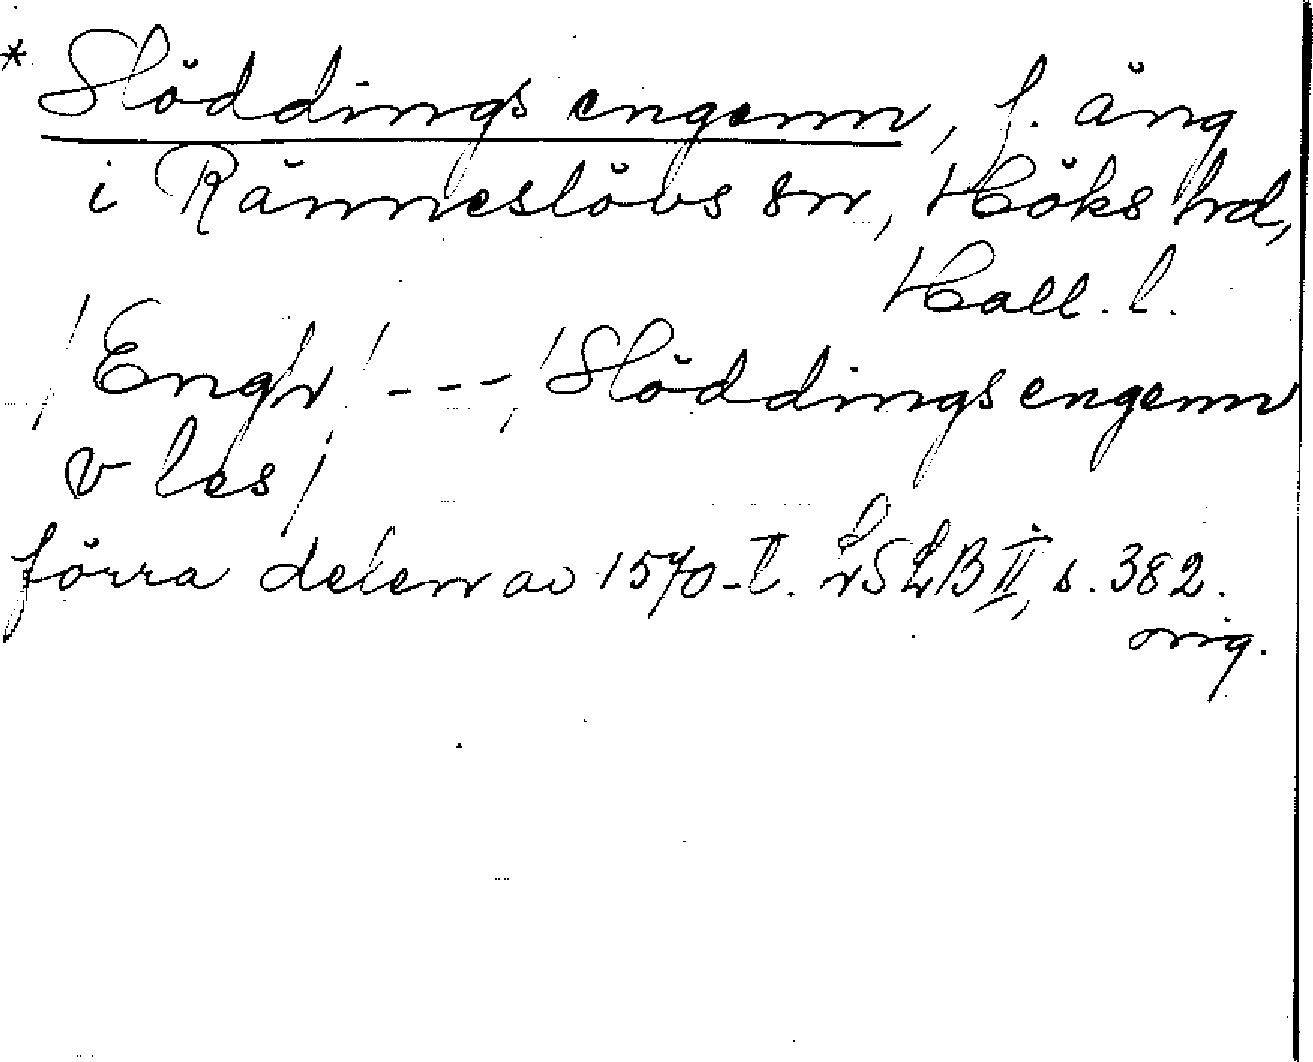 * Slöddings engenn, f. äng
i Ränneslövs sn, Höks hrd,
Hall. l.
/Engh/ --- /Slöddingsengenn
v les/
förra delen av 1570-t. LSLB II, s. 382.
orig.